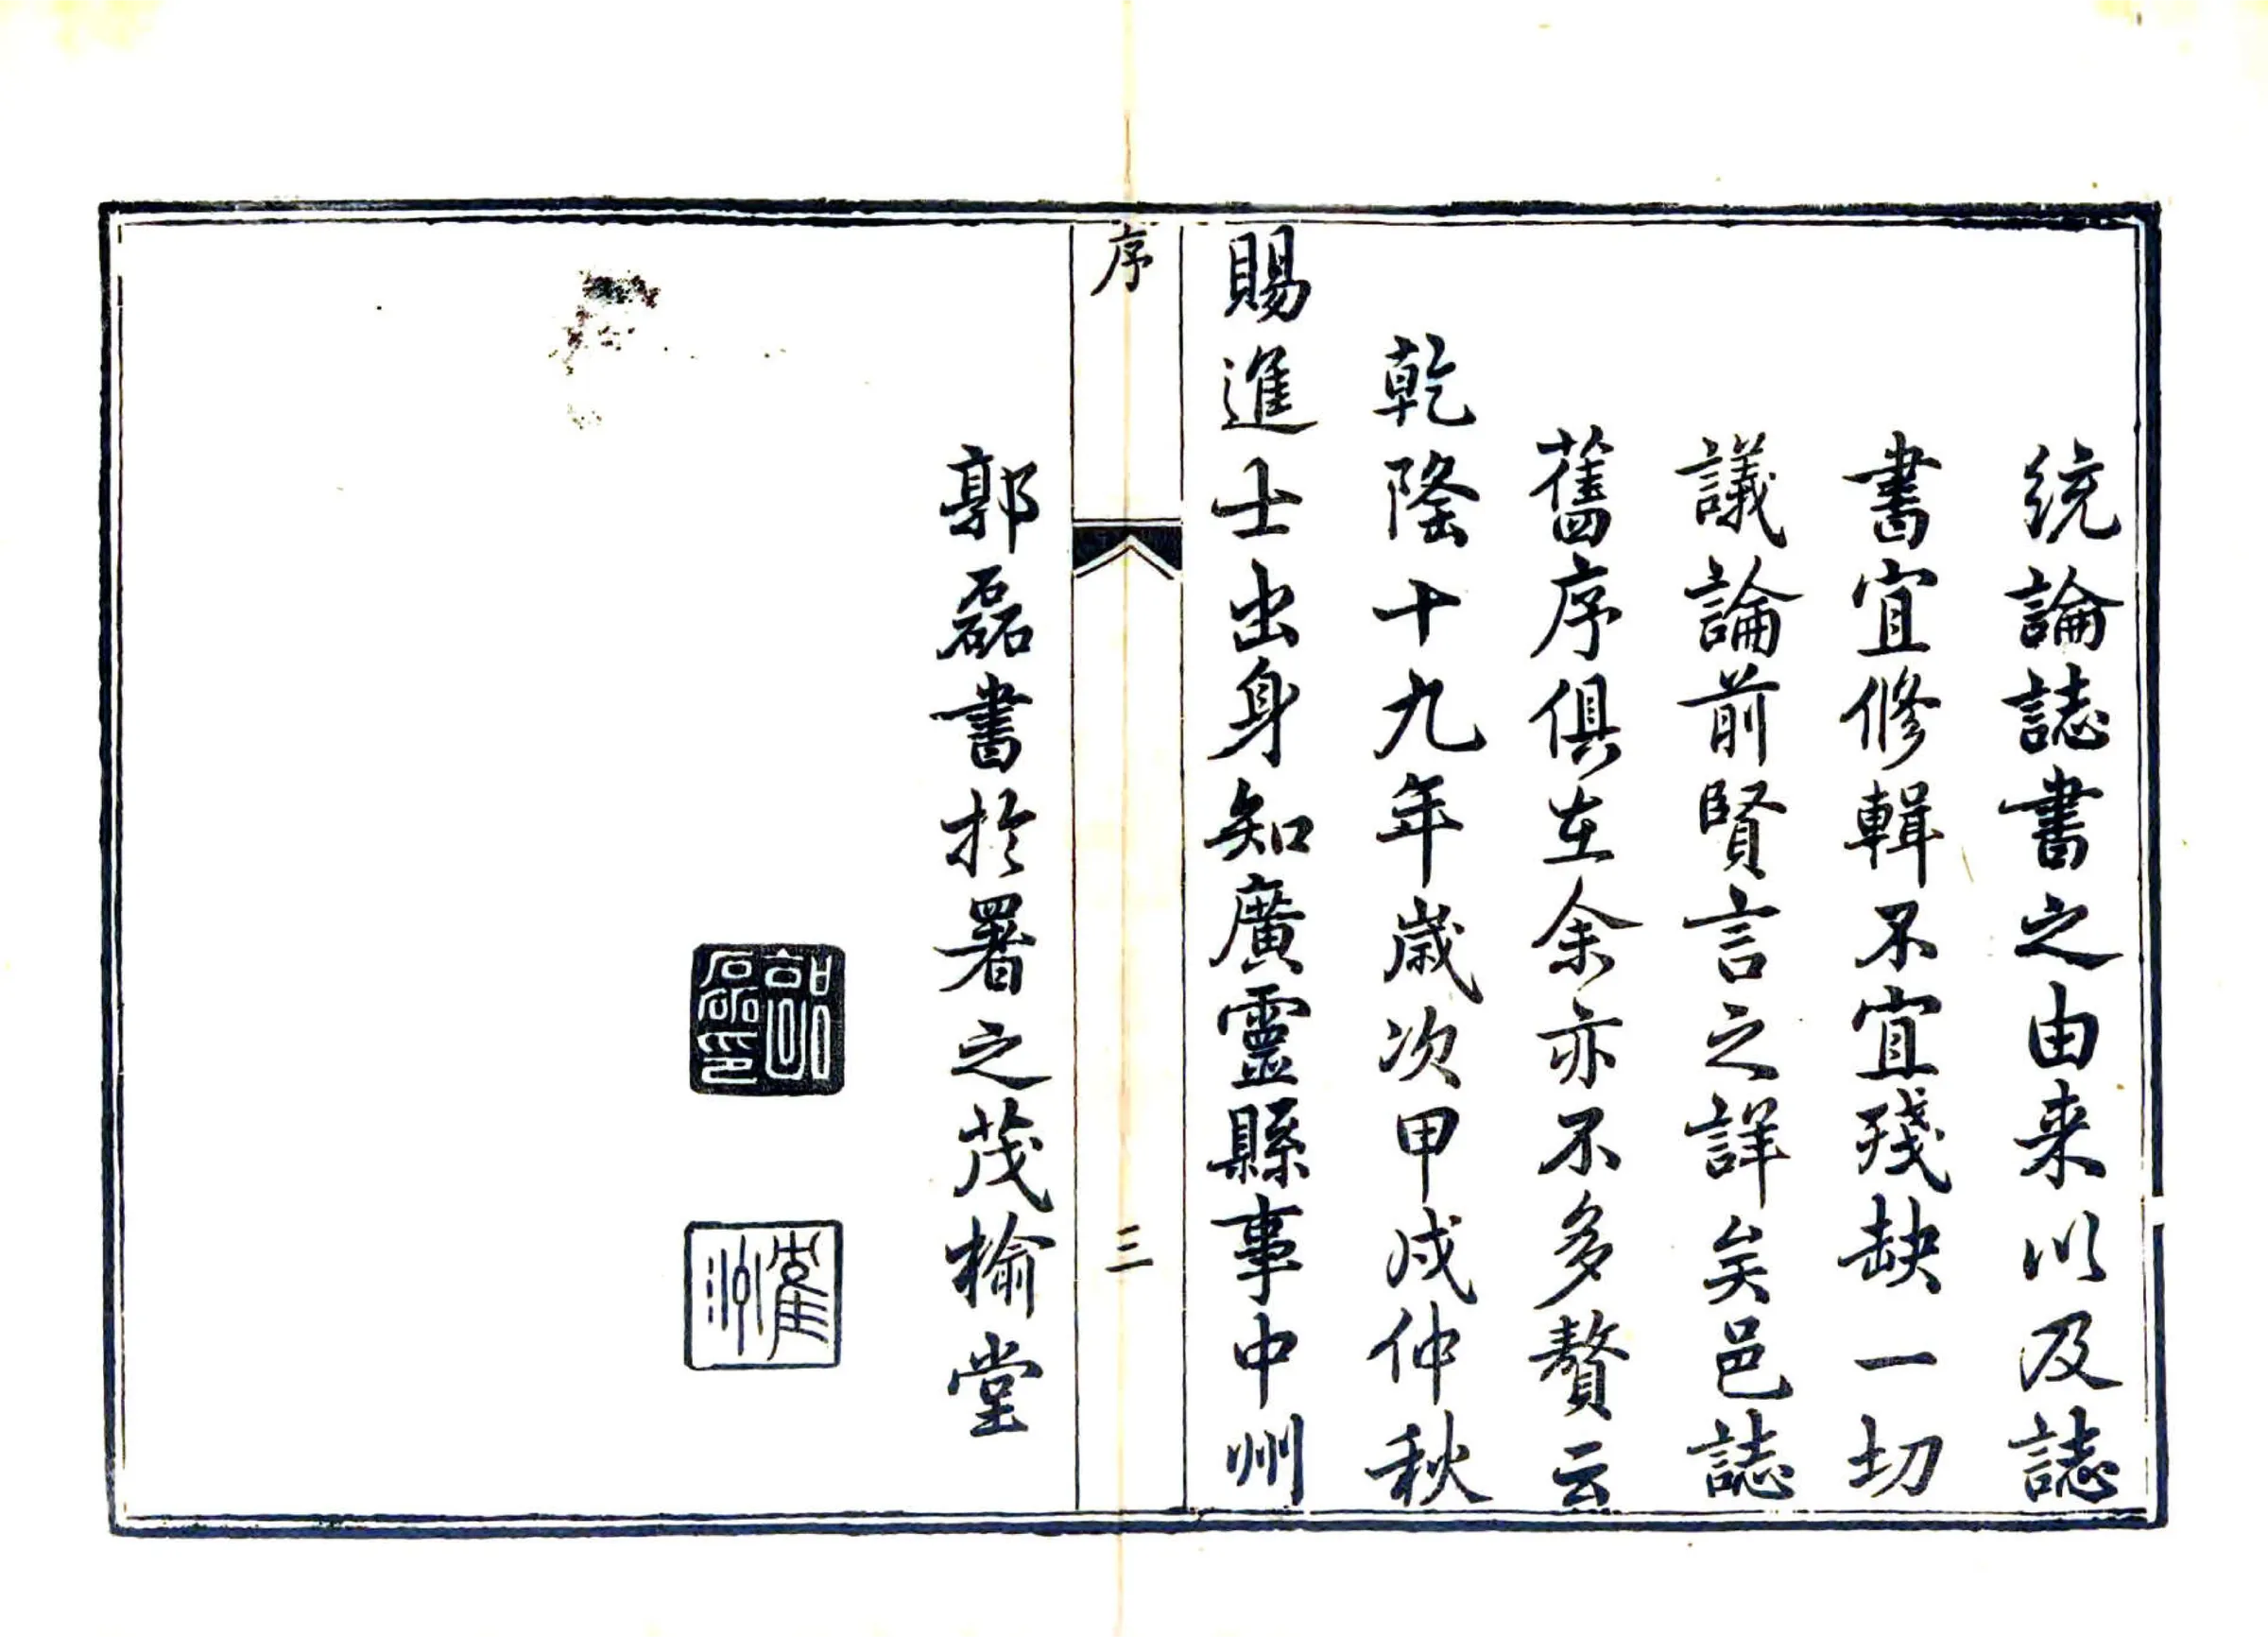 統論誌書之由来以及誌
書宜修輯不宜殘缺一切
議論前賢言之詳矣邑誌
舊序俱在余亦不多贅云
乾隆十九年歲次甲戌仲秋
賜進士出身知廣靈縣事中州
序
三
郭磊書於署之茂榆堂
郭磊印